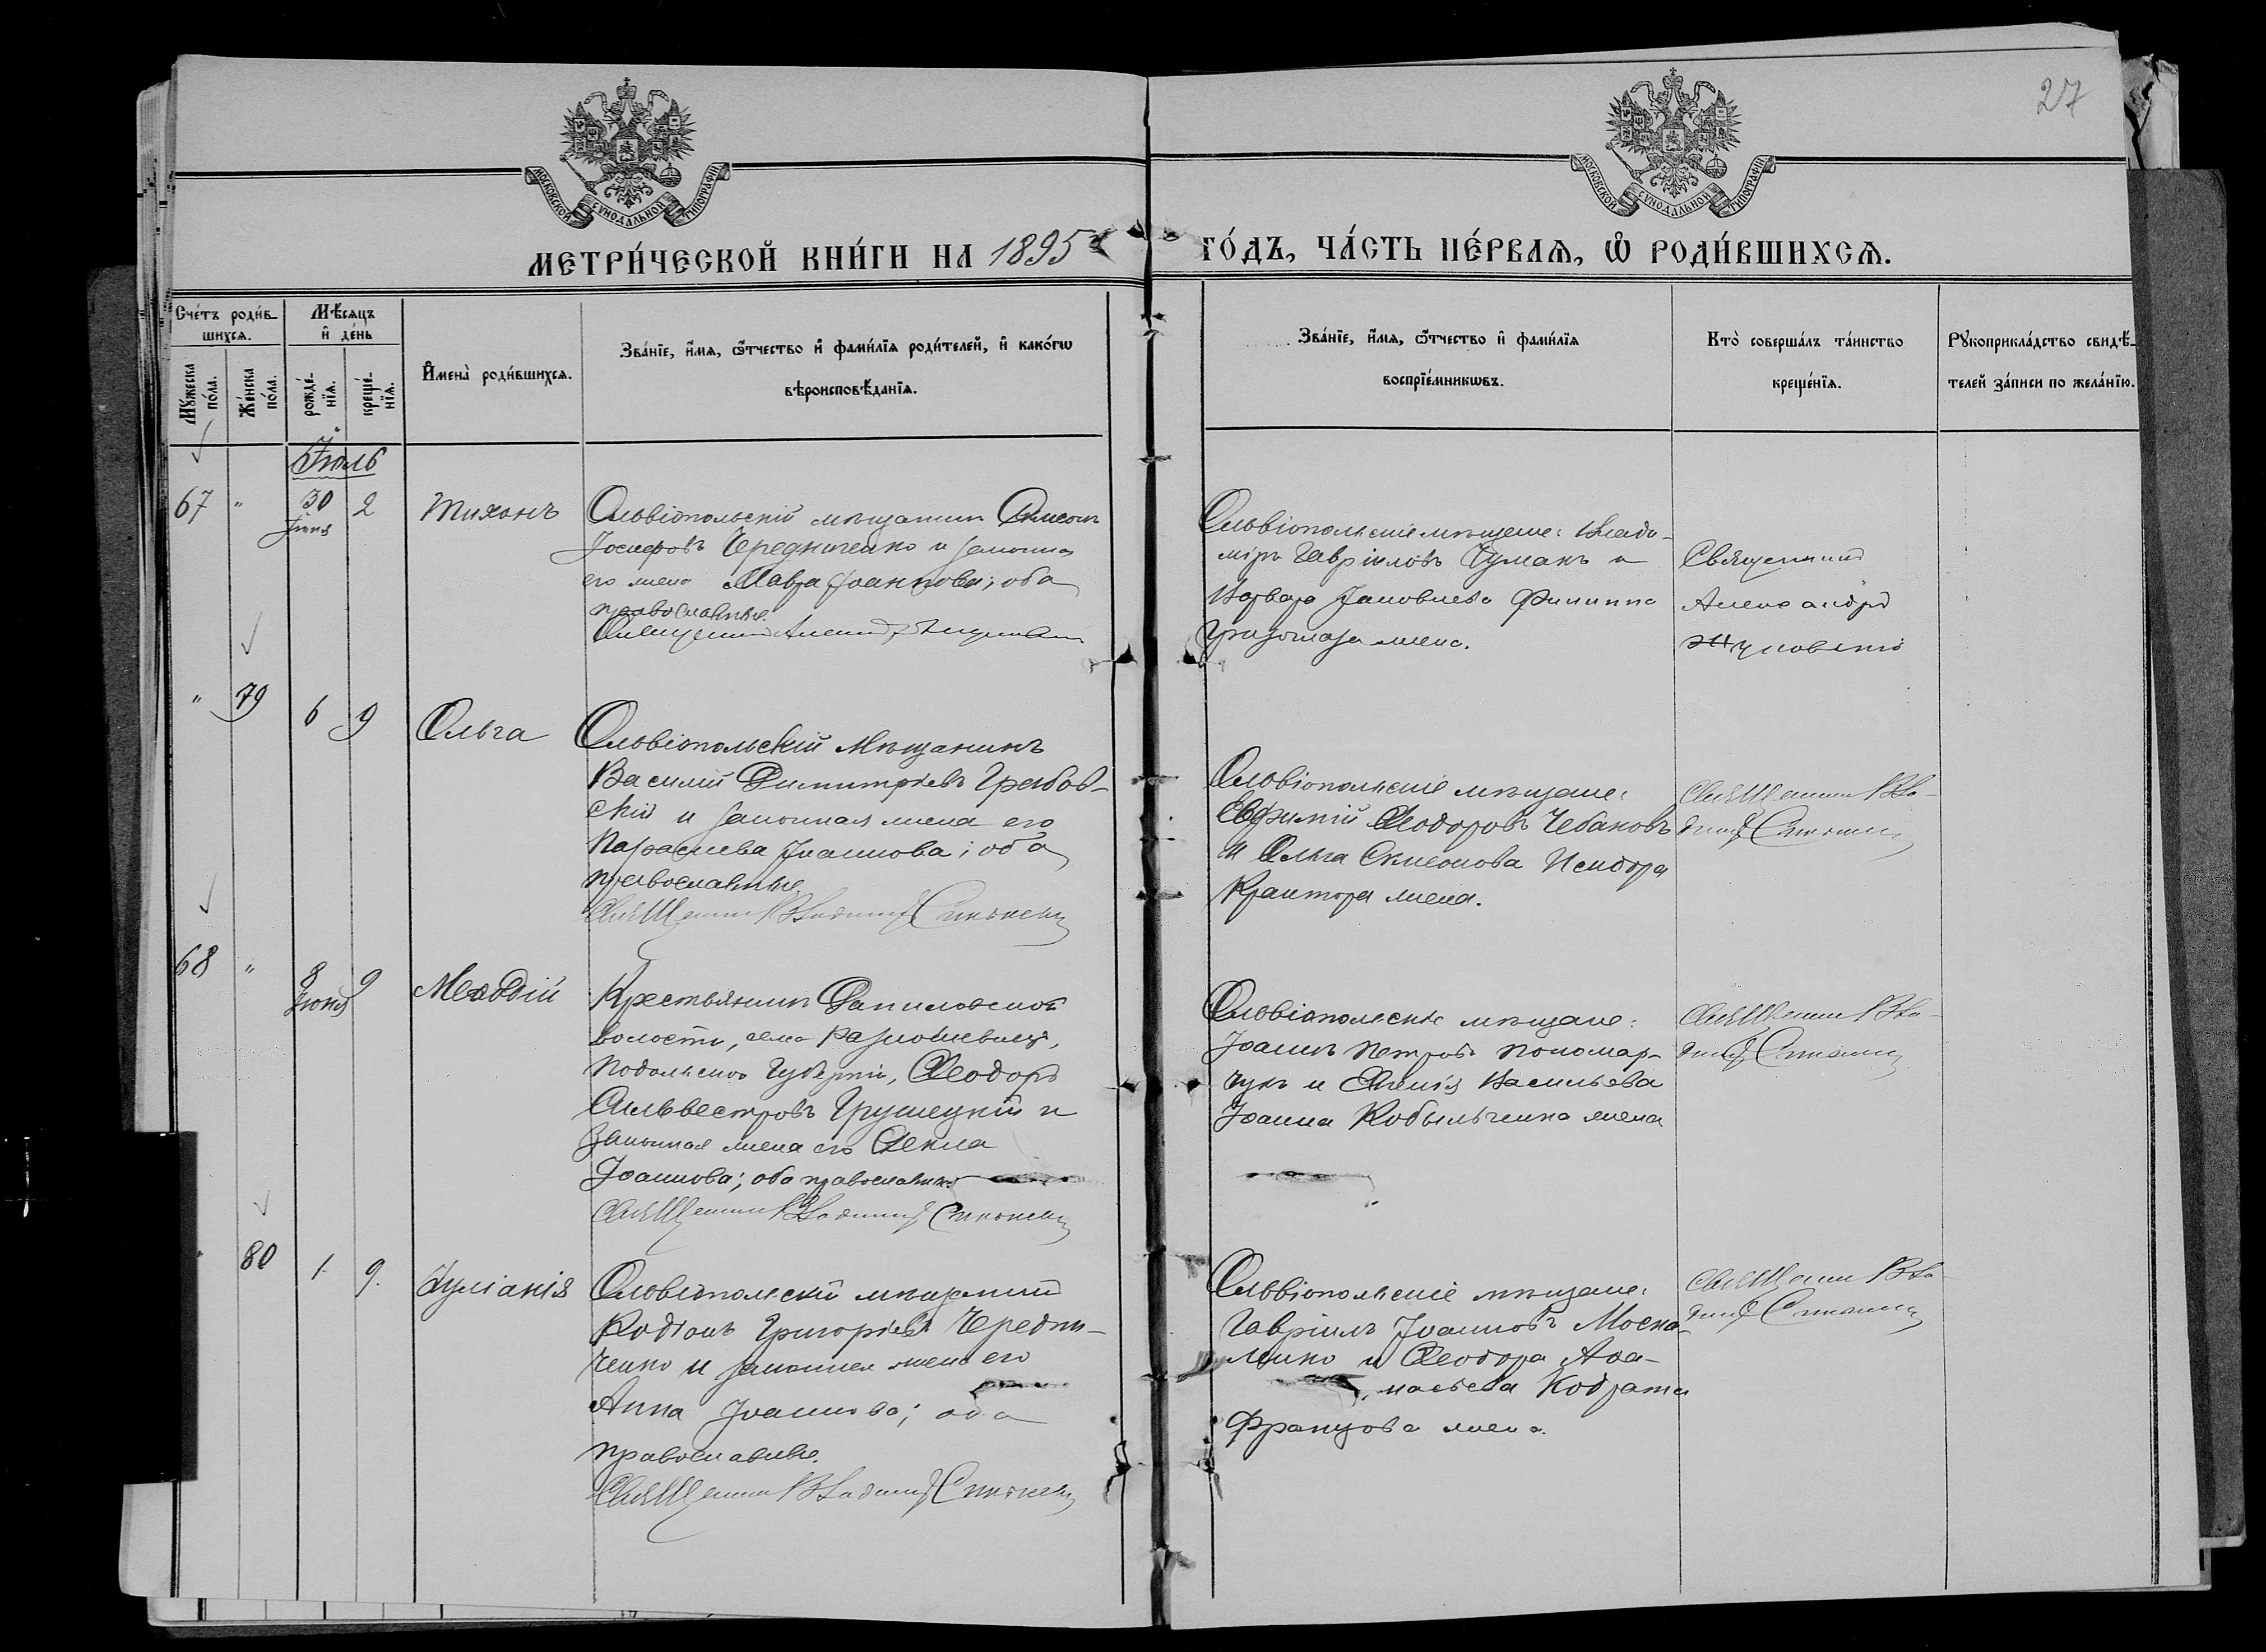 27
МОСКОВСКОЙ СѴНОДАЛЬНОЙ ТИПОГРАФІИ
МОСКОВСКОЙ СѴНОДАЛЬНОЙ ТИПОГРАФІИ
МЕТРИ́ЧЕСКОЙ КНИ́ГИ НА 1895й ГО́ДЪ, ЧА́СТЬ ПЕ́РВАѦ, Ѿ РОДИ́ВШИХСѦ.
Сче́тъ роди́в-
шихсѧ.
Мѣ́сѧцъ
и҆ де́нь
Мꙋ́жеска
по́ла.
Же́нска
по́ла.
рожде́-
нїѧ.
креще́-
нїѧ.
И҆мена̀ роди́вшихсѧ.
Зва́нїе, и҆́мѧ, ѻ҆́тчество и҆ фами́лїѧ роди́телей, и҆ како́гѡ
вѣроисповѣ́данїѧ.
Зва́нїе, и҆́мѧ, ѻ҆́тчество и҆ фами́лїѧ
воспрїе́мникѡвъ.
Кто̀ соверша́лъ та́инство
креще́нїѧ.
Рꙋкоприкла́дство свидѣ́-
телей за́писи по жела́нїю.
Іюль
67 " 30 2 Тихонъ
Іюня
Ольвіопольскій мѣщанинъ Симеонъ
Іосифовъ Чередниченко и законная
его жена Мавра Іоаннова; оба
православные.
Священникъ Александръ Жуковскій
Ольвіопольскіе мѣщане: Влади-
міръ Гавріиловъ Чуманъ и
Варвара Яковлева Филиппа
жена.
Священникъ
Александръ
Жуковскій
" 79 6 9 Ольга
Ольвіопольскій Мѣщанинъ
Василій Димитріевъ Грабов-
скій и законная жена его
Параскева Іоаннова; оба
православные
Священникъ Владиміръ
Ольвіопольскіе мѣщане:
Евфимій Ѳеодоровъ Чебановъ
и Ольга Симеонова Исидора
Крантора жена.
Священникъ Вла-
диміръ
68 " 8 9 Меѳодій
Іюня
Крестьянинъ Даниловской
волости, села
Подольской Губерніи, Ѳеодоръ
Сильвестровъ Грушецкій и
законная жена его Ѳекла
Іоаннова; оба православные
Священникъ Владиміръ
Ольвіопольскіе мѣщане:
Іоаннъ Петровъ Пономар-
чукъ и Васильева
Іоанна Кобыльченка жена
Священникъ Вла-
диміръ
80 1 9. Іуліанія
Ольвіопольскій мѣщанинъ
Родіонъ Григоріевъ Чередни-
ченко и законная жена его
Анна Іоаннова; оба
православные.
Священникъ Владиміръ
Ольвіопольскіе мѣщане:
Гавріилъ Іоанновъ Моска-
ленко и Ѳеодора Аѳа-
насьева Кодрата
Французова жена.
Священникъ Вла-
диміръ